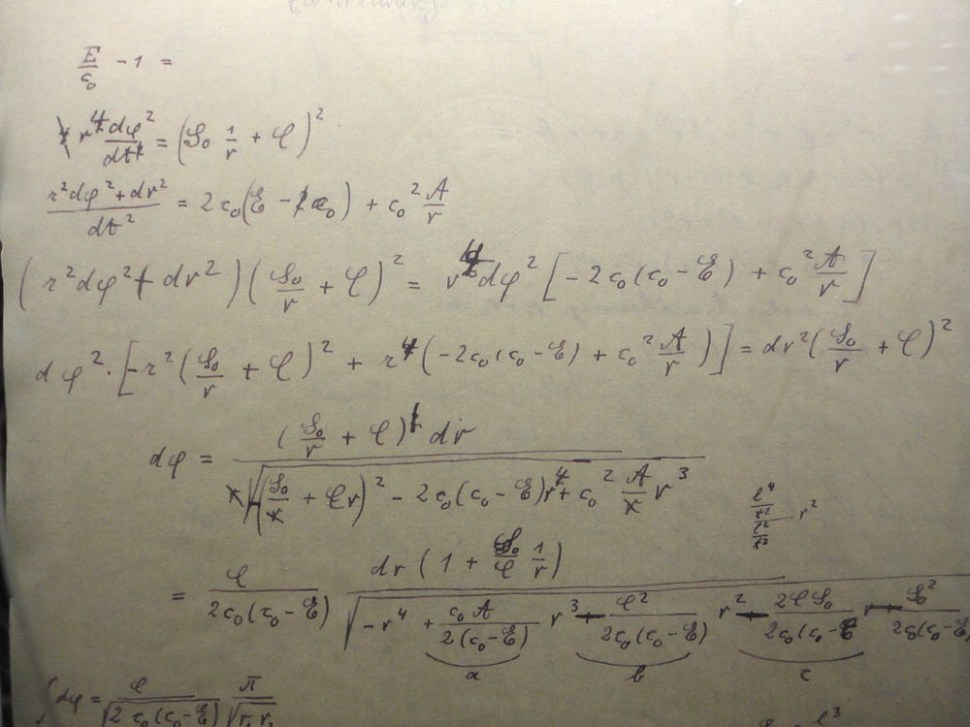 E/c₀ - 1 =
r⁴ dφ²/dt² = (S₀ 1/r + C)²
(r²dφ² + dr²)/dt² = 2c₀(E - c₀) + c₀² A/r
(r²dφ² + dr²)(S₀/r + C)² = r⁴dφ² [-2c₀(c₀ - E) + c₀² A/r]
dφ²·[-r²(S₀/r + C)² + r⁴(-2c₀(c₀ - E) + c₀² A/r)] = dr²(S₀/r + C)²
dφ = (S₀/r + C) dr / √(-(S₀ + Cr)² - 2c₀(c₀ - E)r⁴ + c₀² A r³)
l⁴/t² / l²/t² r²
= C/(2c₀(c₀ - E)) dr(1 + S₀/C 1/r) / √(-r⁴ + c₀A/(2(c₀ - E)) r³ - C²/(2c₀(c₀ - E)) r² - 2CS₀/(2c₀(c₀ - E)) r - S₀²/(2c₀(c₀ - E)
a b c
∫dφ = C/√(2c₀(c₀ - E)) π/√(r₁r₂